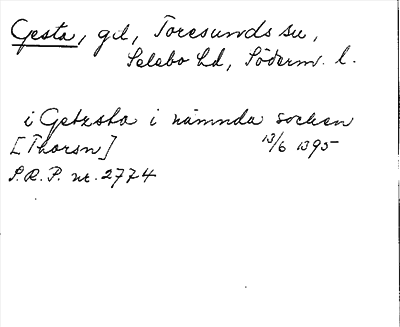 Gesta, gd, Toresunds sn,
Selebo hd, Söderm. l.
i Getzsta i nämnda socken
[Thorsn] 13/6 1395
S.R.P. nr. 2774